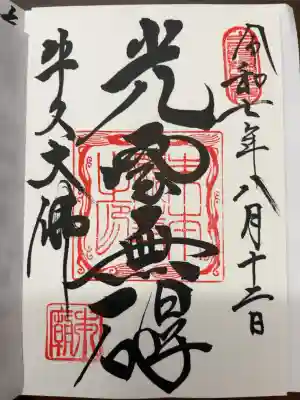 令和七年八月十二日
光雲無碍
牛久大佛